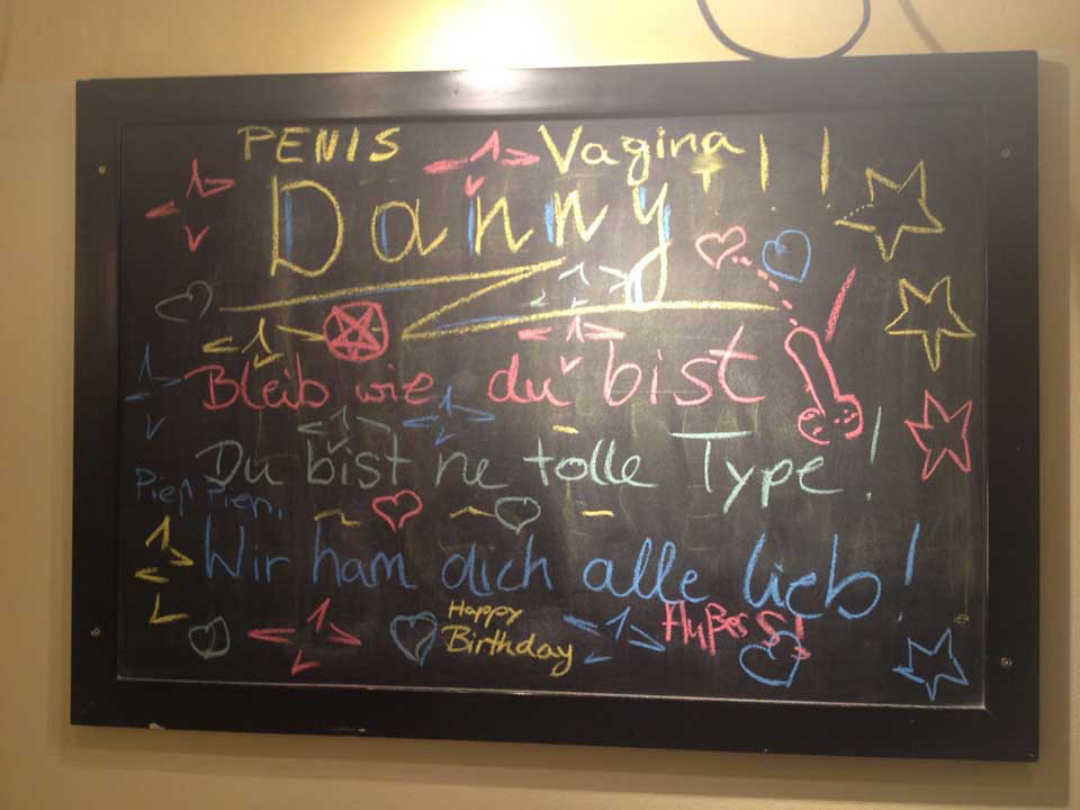 PENIS Vagina !!
Danny
Bleib wie du bist
Du bist ne tolle Type!
Piep Piep,
Wir ham dich alle lieb!
Happy
Birthday